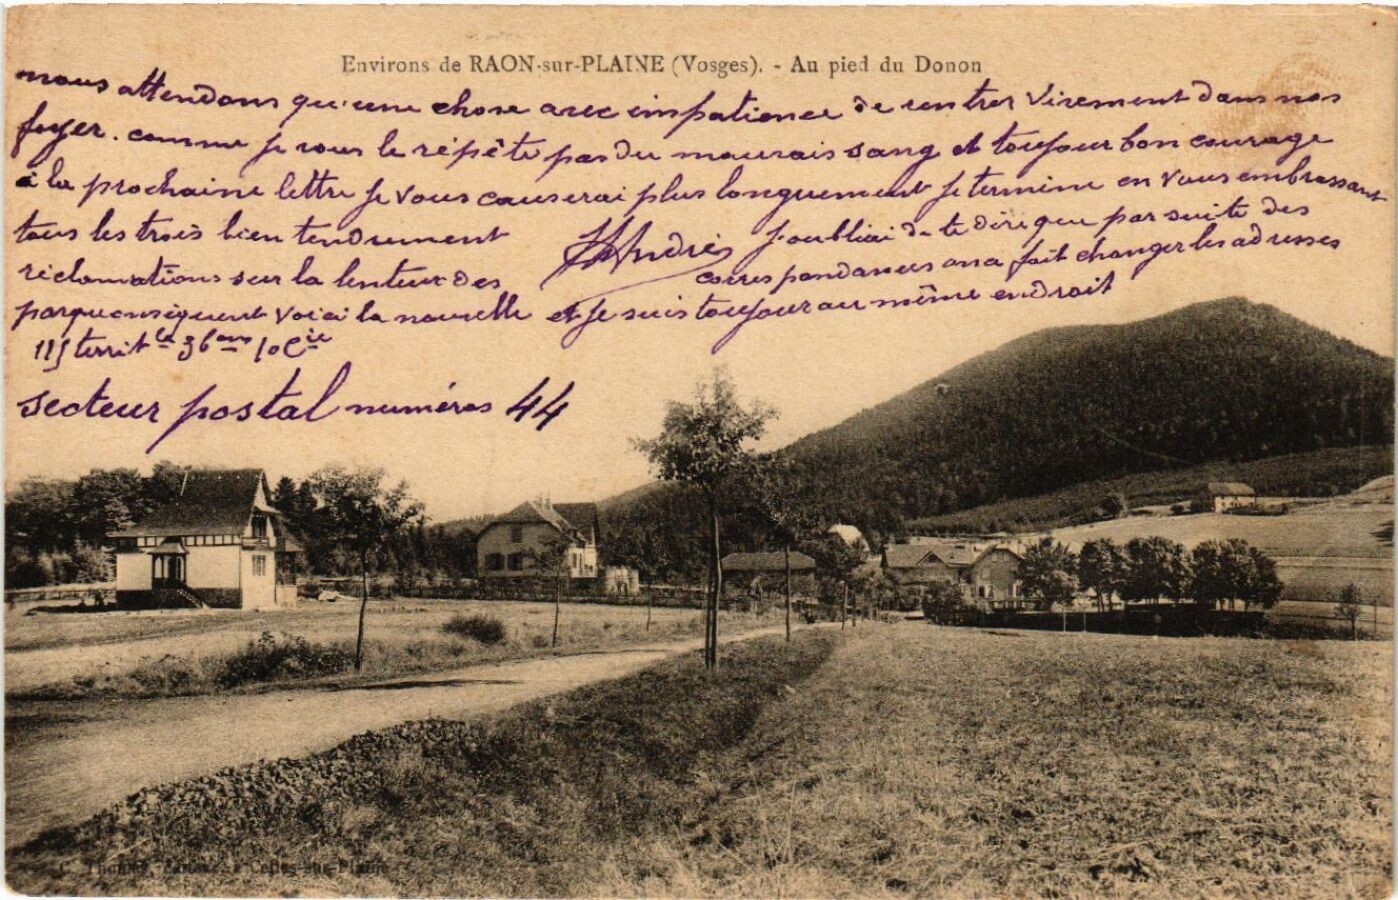 Environs de RAON-sur-PLAINE (Vosges). - Au pied du Donon
nous attendons qu'une chose avec impatience de rentrer virement dans nos
foyer. comme je vous le répête pas du mauvais sang et toujour bon courage
à la prochaine lettre je vous causerai plus longuement je termine en vous embrassant
tous les trois bien tendrement
André
j'oubliai de te dire que par suite des
réclamations sur la lenteur des
correspondances on a fait changer les adresses
parquonséquent voici la nouvelle et je suis toujour au même endroit
115 territle 36 10 Cie
secteur postal numéros 44
C. Thomas, à Celles-sur-Plaine